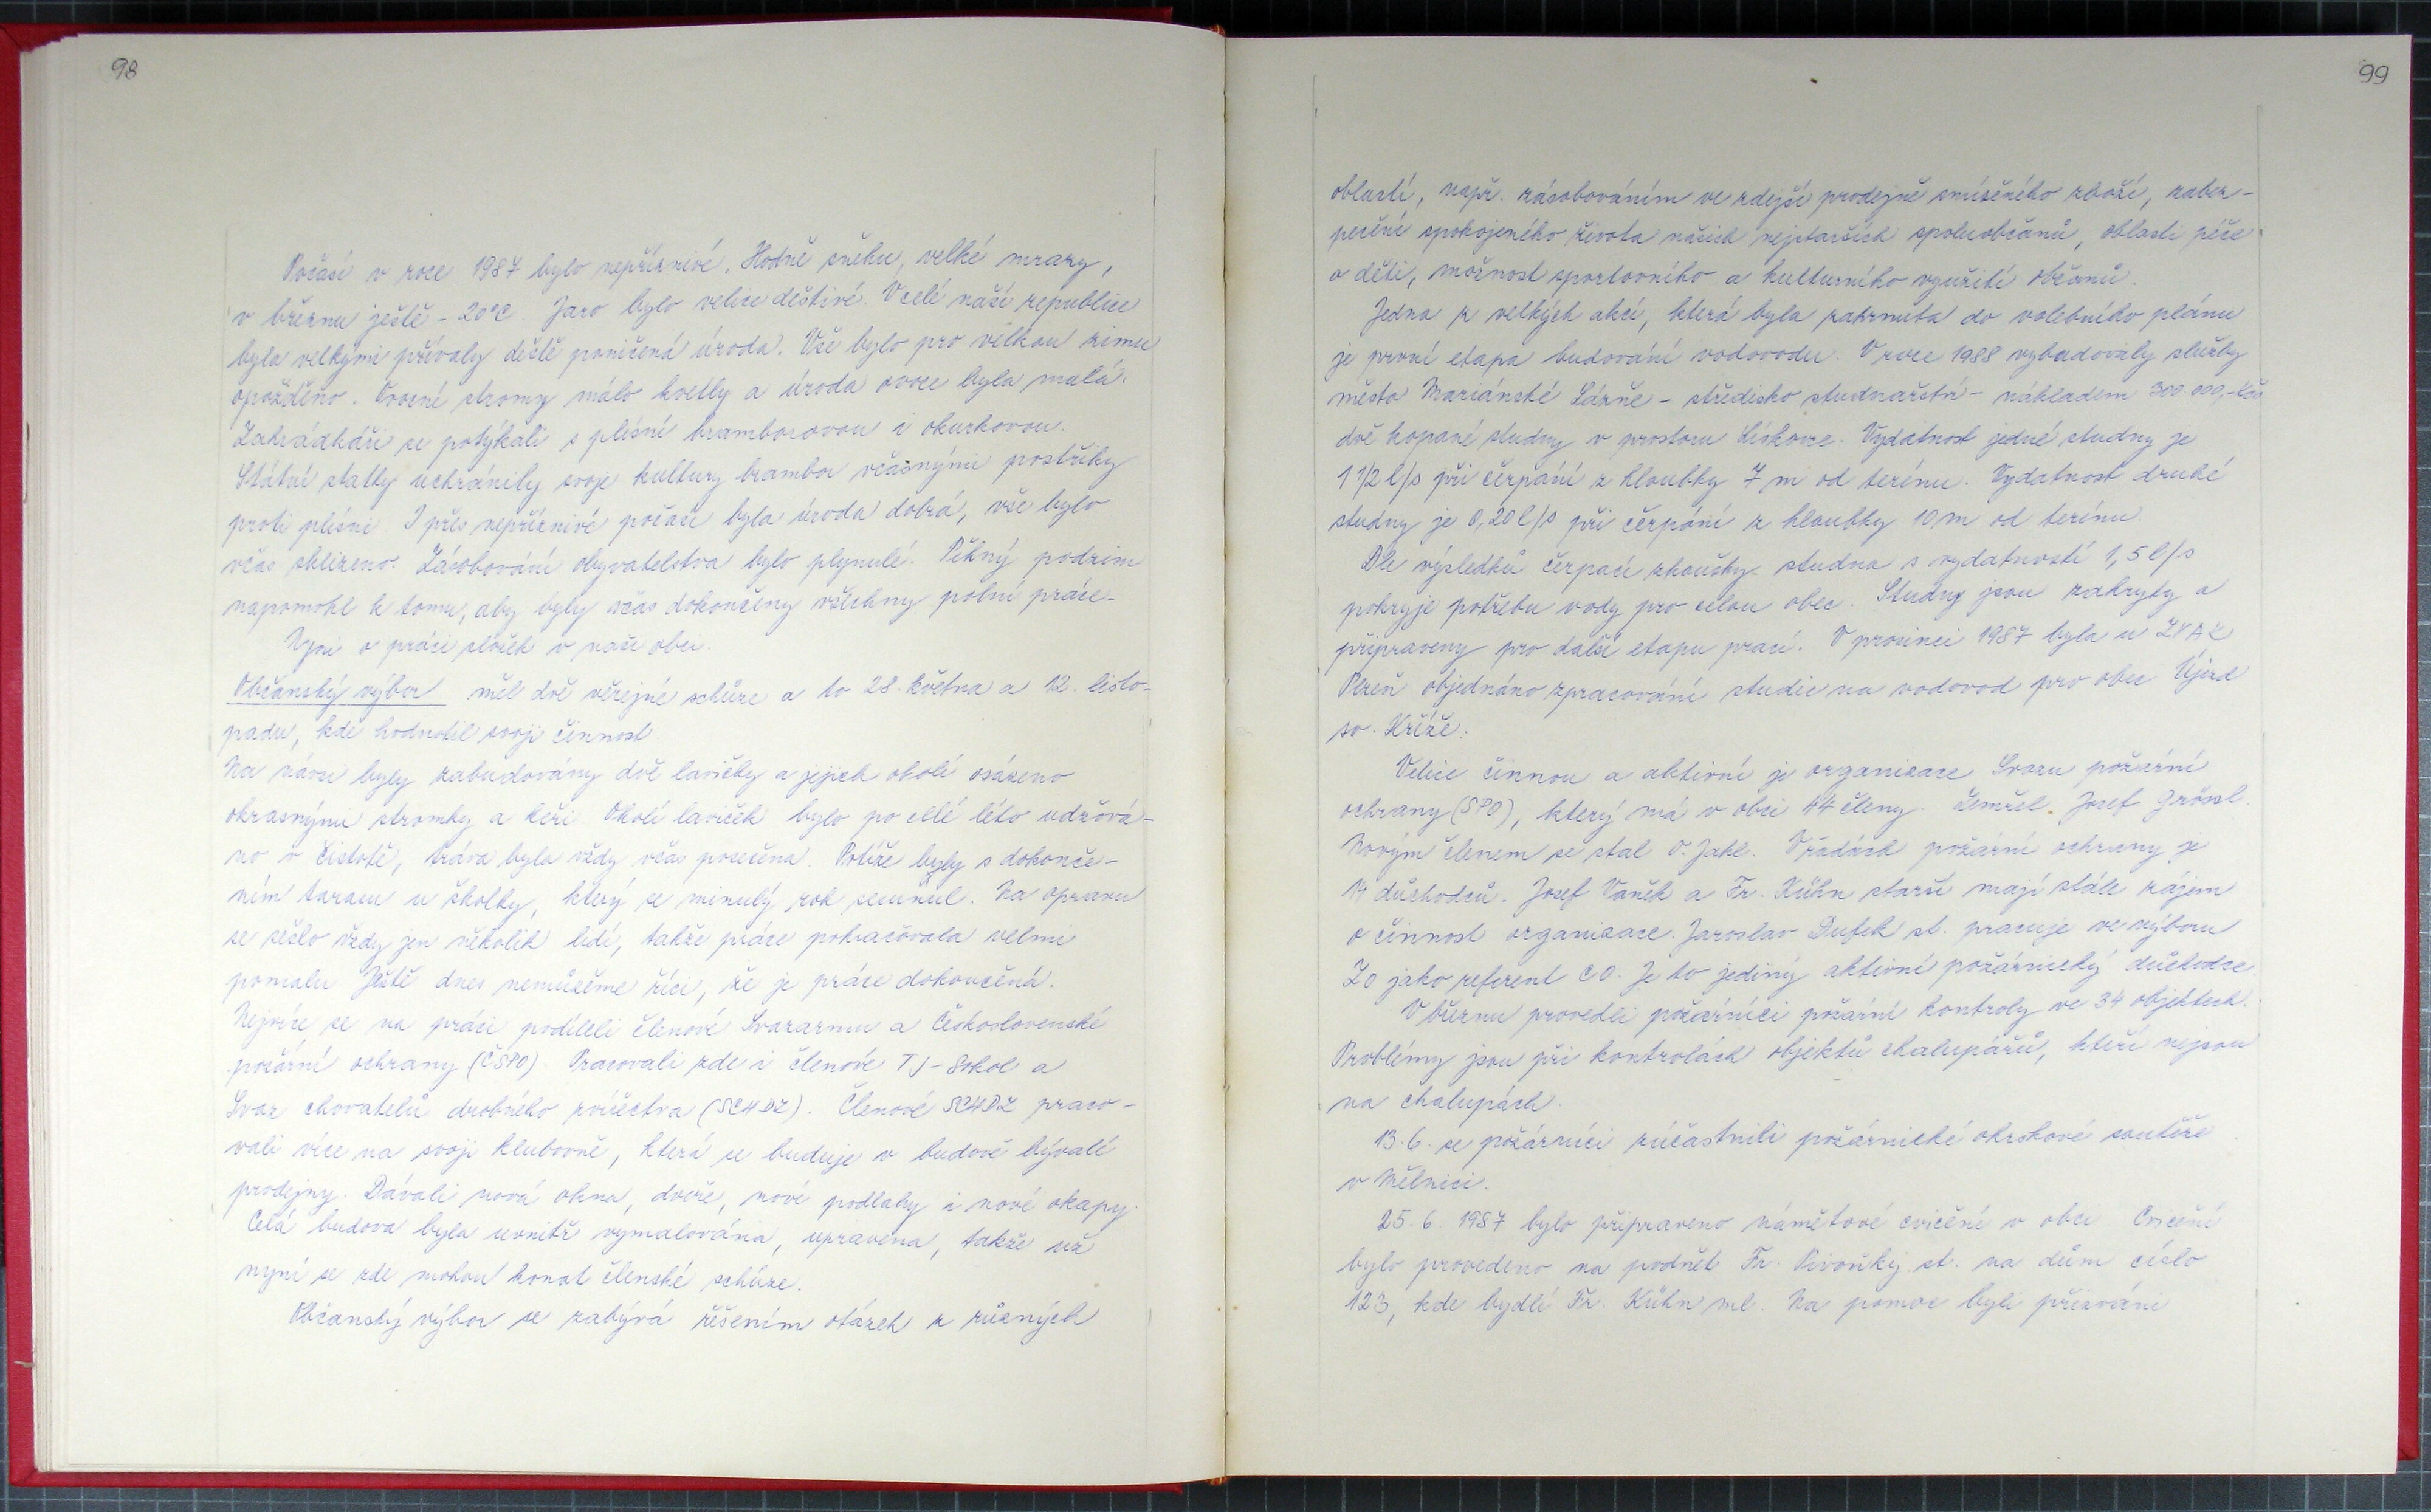 98
Počasí v roce 1987 bylo nepříznivé. Hodně sněhu, velké mrazy,
v březnu ještě - 20°C. Jaro bylo velice deštivé. V celé naší republice
byla velkými přívaly deště poničená úroda. Vše bylo pro velkou zimu
opožděno. Ovocné stromy málo kvetly a úroda ovoce byla malá.
Zahrádkáři se potýkali s plísní bramborovou i okurkovou.
Státní statky uchránily svoje kultury brambor včasnými postřiky
proti plísni. I přes nepříznivé počasí byla úroda dobrá, vše bylo
včas sklizeno. Zásobování obyvatelstva bylo plynulé. Pěkný podzim
napomohl k tomu, aby byly včas dokončeny všechny polní práce.
Nyní o práci složek v naší obci.
Občanský výbor měl dvě veřejné schůze a to 28. května a 12. listo-
padu, kde hodnotil svoji činnost
Na návsi byly zabudovány dvě lavičky a jejich okolí osázeno
okrasnými stromky a keři. Okolí laviček bylo po celé léto udržová-
no v čistotě, tráva byla vždy včas posečena. Potíže byly s dokonče-
ním tarasu u školky, který se minulý rok sesunul. Na opravu
se sešlo vždy jen několik lidí, takže práce pokračovala velmi
pomalu Ještě dnes nemůžeme říci, že je práce dokončená.
Nejvíce se na práci podíleli členové Svazarmu a Československé
požární ochrany (ČSPO). Pracovali zde i členové TJ-Sokol a
Svaz chovatelů drobného zvířectva (SCHDZ). Členové SCHDZ praco-
vali více na svojí klubovně, která se buduje v budově bývalé
prodejny. Dávali nová okna, dveře, nové podlahy i nové okapy.
Celá budova byla uvnitř vymalována, upravena, takže už
nyní se zde mohou konat členské schůze.
Občanský výbor se zabývá řešením otázek z různých
99
oblastí, např. zásobováním ve zdejší prodejně smíšeného zboží, zabez-
pečení spokojeného života našich nejstarších spoluobčanů, oblasti péče
o děti, možnost sportovního a kulturního využití občanů.
Jedna z velkých akcí, která byla zahrnuta do volebního plánu
je první etapa budování vodovodu. V roce 1988 vybudovaly služby
města Mariánské Lázně - středisko studnařství - nákladem 300 000,-Kčs
dvě kopané studny v prostoru Lískovce. Vydatnost jedné studny je
1 1/2 l/s při čerpání z hloubky 7 m od terénu. Vydatnost druhé
studny je 0,20 l/s při čerpání z hloubky 10 m od terénu.
Dle výsledků čerpací zkoušky studna s vydatností 1,5 l/s
pokryje potřebu vody pro celou obec. Studny jsou zakryty a
připraveny pro další etapu prací. V prosinci 1987 byla u ZVAK
Plzeň objednáno zpracování studie na vodovod pro obec Újezd
sv. Kříže.
Velice činnou a aktivní je organizace Svazu požární
ochrany (SPO), který má v obci 44 členy. Zemřel Josef Grössl.
Novým členem se stal V. Jakl. V řadách požární ochrany je
14 důchodců. Josef Vaněk a Fr. Kühn starší mají stále zájem
o činnost organizace. Jaroslav Dufek st. pracuje ve výboru
ZO jako referent CO. Je to jediný aktivní požárnický důchodce.
V březnu provedli požárníci požární kontroly ve 34 objektech.
Problémy jsou při kontrolách objektů chalupářů, kteří nejsou
na chalupách.
13.6. se požárníci zúčastnili požárnické okrskové soutěže
v Mělnici.
25.6. 1987 bylo připraveno námětové cvičení v obci Cvičení
bylo provedeno na podnět Fr. Pivoňky st. na dům číslo
123, kde bydlí Fr. Kühn ml. Na pomoc byli přizváni